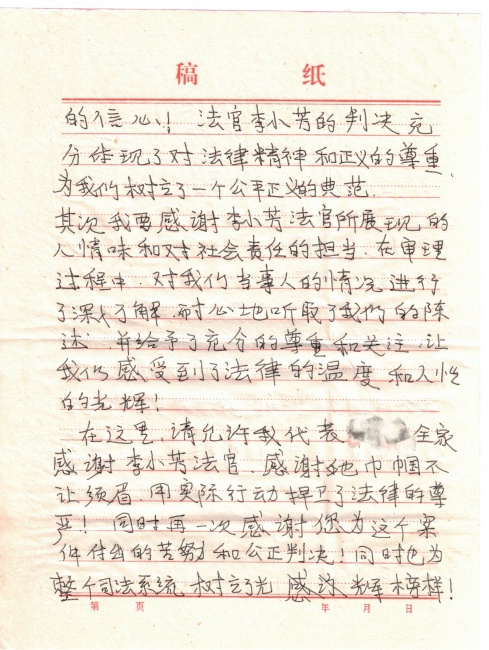 稿 纸
的信心! 法官李小芳的判决充
分体现了对法律精神和正义的尊重
为我们树立了一个公平正义的典范.
其次我要感谢李小芳法官所展现的
人情味和对社会责任的担当.在审理
过程中.对我们当事人的情况进行
了深入了解.耐心地听取了我们的陈
述.并给予了充分的尊重和关注.让
我们感受到了法律的温度和人性
的光辉!
在这里,请允许我代表 全家
感谢李小芳法官.感谢她巾帼不
让须眉.用实际行动捍卫了法律的尊
严! 同时再一次感谢您为这个案
件付出的苦努力和公正判决!同时也为
整个司法系统树立了光 辉榜样!
第 页 年 月 日